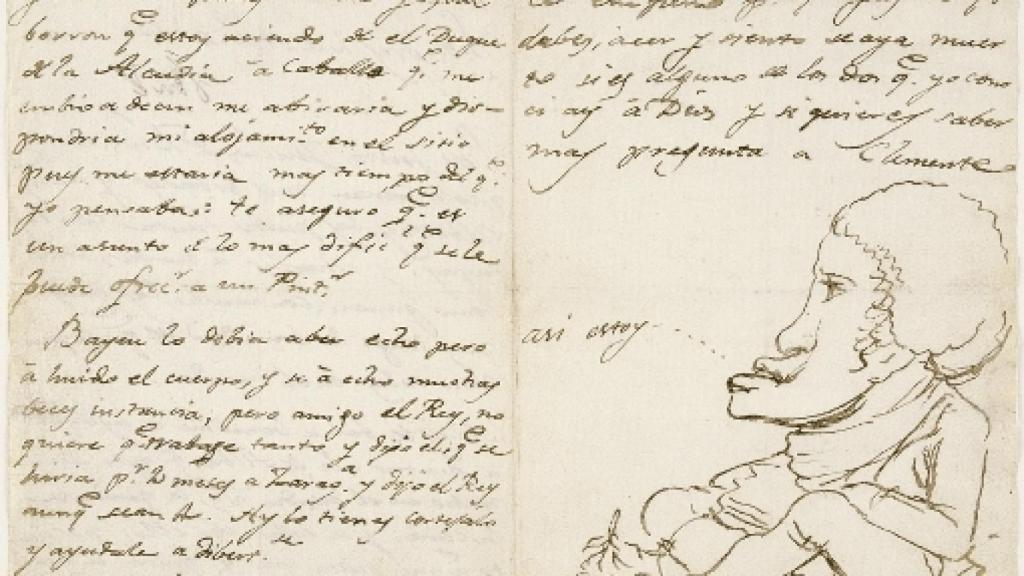 borron q.e estoy aciendo de el Duque
de la Alcudia á Caballo q.e me
embio a decir me abisaria y dis-
pondria mi alojami.to en el sitio
pues me estaria mas tiempo del q.e
yo pensaba: te aseguro q.e es
un asunto de lo mas dificil q.e se le
puede ofre.r a un Pint.r
Bayeu lo debia aber echo pero
á huido el cuerpo, y se á echo muchas
beces instancia, pero amigo el Rey, no
quiere q.e trabage tanto y dijo el q.e se
hiria p.r meses a Zarag.a y dijo el Rey
y ayudale a dibert.se
debes, acer y siento se aya muer
to si es alguno de los dos q.e yo cono
ci ay á Dios y si quieres saber
mas pregunta a Clemente
asi estoy